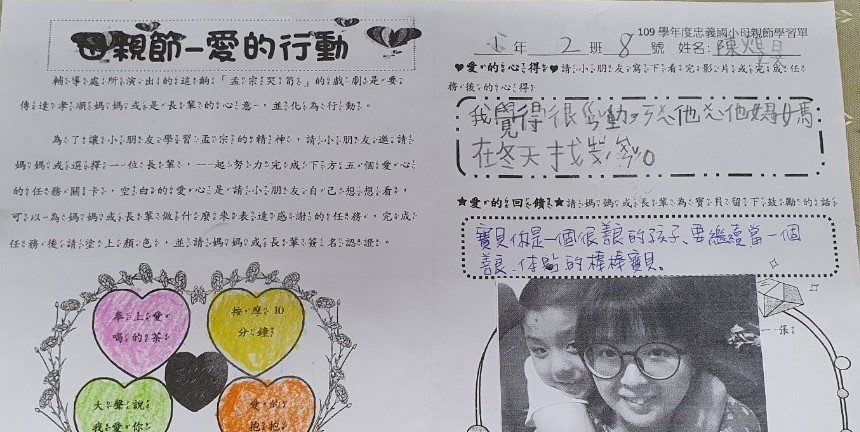 母親節－愛的行動
輔導處所演出的這齣「孟宗哭筍」的戲劇是要
傳達孝順媽媽或是長輩的心意，並化為行動。
為了讓小朋友學習孟宗的精神，請小朋友邀請
媽媽或選擇一位長輩，一起努力完成下方五個愛心
的任務關卡，空白的愛心是請小朋友自己想想看，
可以為媽媽或長輩做什麼來表達感謝的任務，完成
任務後請塗上顏色，並請媽媽或長輩簽名認證。
奉上愛
喝的茶
按摩10
分鐘
大聲說
我愛你
愛的
抱抱
109 學年度忠義國小母親節學習單
年 2 班 8 號 姓名：陳
♥愛的心得♥請小朋友寫下看完影片或完成任
務後的心得
我覺得很感動，他 他媽媽
在冬天找
★愛的回饋★請媽媽或長輩為寶貝留下鼓勵的話
寶貝你是一個很善良的孩子、要繼續當一個
善良、体貼的棒棒寶貝。
一張